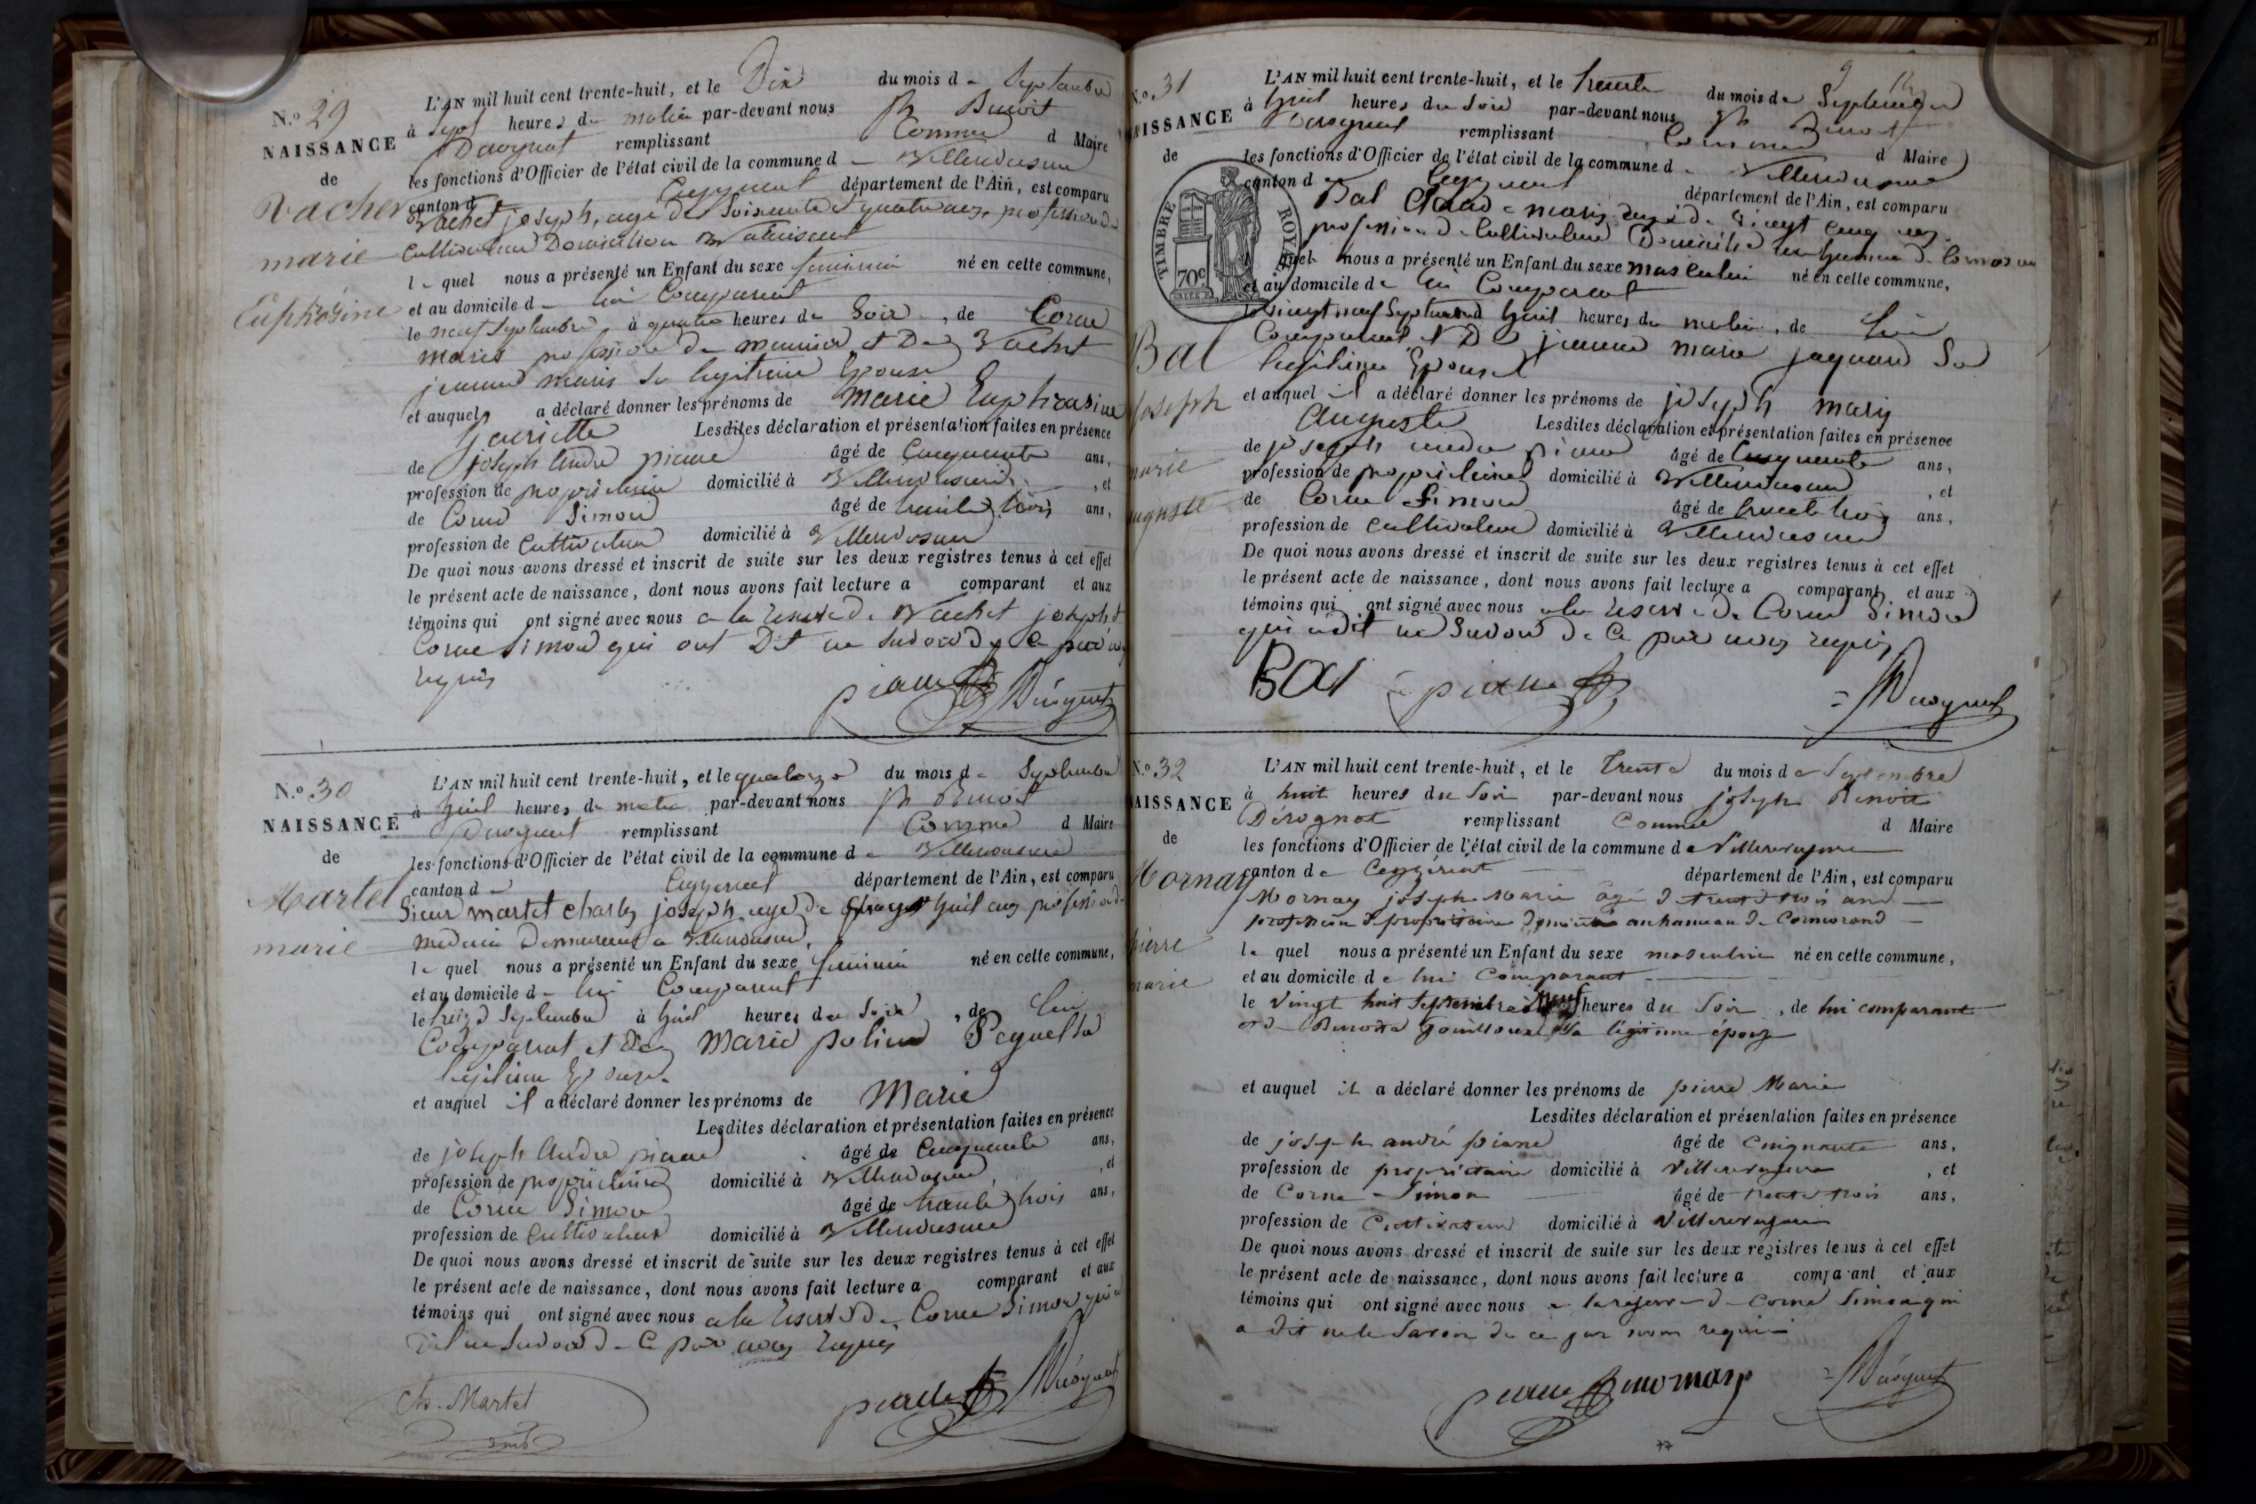 N.o 29
NAISSANCE
de
Vachet
marie
Euphrosine
L'AN mil huit cent trente-huit, et le Dix du mois d Septembre
à Sept heures du matin par-devant nous Jh Benoit
remplissant Comme d Maire
les fonctions d'Officier de l'état civil de la commune d
canton d département de l'Ain, est comparu
Vachet joseph, agé de Soixante et quatre ans, profession de
Cultivateur Domicilié a
le quel nous a présenté un Enfant du sexe feminin né en cette commune,
et au domicile de lui Comparant
le neuf Septembre à quatre heures du Soir, de Corne
marie profession de et De Vachet
jeanne marie Sa legitime Epouse
et auquel a déclaré donner les prénoms de Marie Euphrasine
Henriette Lesdites déclaration et présentation faites en présence
de joseph andre piane âgé de Cinquante ans,
profession de propriétaire domicilié à Villereversure, et
de Corne Simon âgé de trente trois ans,
profession de Cultivateur domicilié à Villereversure
De quoi nous avons dressé et inscrit de suite sur les deux registres tenus à cet effet
le présent acte de naissance, dont nous avons fait lecture a comparant et aux
témoins qui ont signé avec nous a la reserve de Vachet joseph et
Corne Simon qui ont Dit ne Savoir de ce par nous
requis
piane
N.o 30
NAISSANCE
de
Martel
marie
L'AN mil huit cent trente-huit, et le quatorze du mois de Septembre
à huit heures du matin par-devant nous Jh Benoit
remplissant Comme d Maire
les fonctions d'Officier de l'état civil de la commune d
canton d département de l'Ain, est comparu
Sieur martel charles joseph agé de huit ans profession de
medecin Demeurant a Villereversure,
le quel nous a présenté un Enfant du sexe feminin né en cette commune,
et au domicile de lui Comparant
le treize Septembre à huit heures du Soir, de lui
Comparant et De Marie poline
legitime Epouse
et auquel il a déclaré donner les prénoms de Marie
Lesdites déclaration et présentation faites en présence
de joseph Andre piane âgé de Cinquante ans,
profession de propriétaire domicilié à Villereversure, et
de Corne Simon âgé de trente trois ans,
profession de Cultivateur domicilié à Villereversure
De quoi nous avons dressé et inscrit de suite sur les deux registres tenus à cet effet
le présent acte de naissance, dont nous avons fait lecture a comparant et aux
témoins qui ont signé avec nous a la reserve de Corne Simon qui a
Dit ne Savoir de Ce par nous requis
Ch. Martel
piane
N.o 31
NAISSANCE
de
TIMBRE ROYAL
70c
Bal
joseph
marie
auguste
L'AN mil huit cent trente-huit, et le trente du mois de Septembre
à huit heures du Soir par-devant nous Jh Benoit
remplissant Comme d Maire
les fonctions d'Officier de l'état civil de la commune d Villereversure
canton d département de l'Ain, est comparu
Bal Claude marie agé de vingt cinq ans
profession de Cultivateur Domicilié au hameau de Cormorand
le quel nous a présenté un Enfant du sexe masculin né en cette commune,
et au domicile de lui Comparant
le vingt neuf Septembre huit heures du matin, de lui
Comparant et De jeanne marie jaquand Sa
legitime Epouse
et auquel il a déclaré donner les prénoms de joseph marie
Auguste Lesdites déclaration et présentation faites en présence
de joseph andre piane âgé de Cinquante ans,
profession de propriétaire domicilié à Villereversure, et
de Corne Simon âgé de trente trois ans,
profession de Cultivateur domicilié à Villereversure
De quoi nous avons dressé et inscrit de suite sur les deux registres tenus à cet effet
le présent acte de naissance, dont nous avons fait lecture a comparant et aux
témoins qui ont signé avec nous a la reserve de Corne Simon
qui a dit ne Savoir de Ce par nous requis
Bal piane
N.o 32
NAISSANCE
de
Mornay
pierre
marie
L'AN mil huit cent trente-huit, et le trente du mois de Septembre
à huit heures du Soir par-devant nous joseph Benoit
Dérognat remplissant Comme d Maire
les fonctions d'Officier de l'état civil de la commune de Villereversure
canton de Ceyzériat département de l'Ain, est comparu
Mornay joseph Marie agé de trente trois ans
profession de propriétaire domicilié au hameau de Cormorand
le quel nous a présenté un Enfant du sexe masculin né en cette commune,
et au domicile de lui Comparant
le vingt huit Septembre à neuf heures du Soir, de lui comparant
et de Sa légitime épouse
et auquel il a déclaré donner les prénoms de pierre Marie
Lesdites déclaration et présentation faites en présence
de joseph andré piane âgé de Cinquante ans,
profession de propriétaire domicilié à Villereversure, et
de Corne Simon âgé de trente trois ans,
profession de Cultivateur domicilié à Villereversure
De quoi nous avons dressé et inscrit de suite sur les deux registres tenus à cet effet
le présent acte de naissance, dont nous avons fait lecture a comparant et aux
témoins qui ont signé avec nous a la réserve de Corne Simon qui
a dit ne le Savoir de ce par nous requis
piane mornay